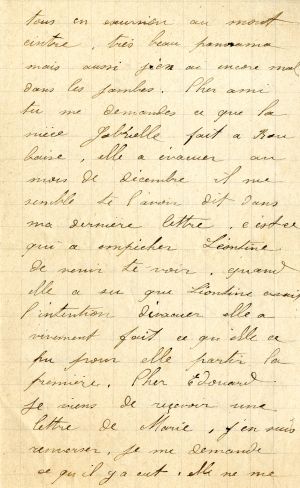 tous en excursion au mont
cintre, très beau panorama
mais aussi j'en ai encore mal
dans les jambes. Cher ami
tu me demandes ce que la
nièce Gabrielle fait a Rou
baise, elle a évacuer au
mois de décembre il me
semble te l'avoir dit dans
ma dernière lettre, c'est ce
qui a empécher Léontine
de venir te voir, quand
elle a su que Léontine avais
l'intention d'évacuer elle a
vivement fait ce qu'elle a
pu pour elle partir la
première. Cher Edouard
je viens de reçevoir une
lettre de Marie, j'en suis
renverser, je me demande
ce qu'il y a eut, elle ne me